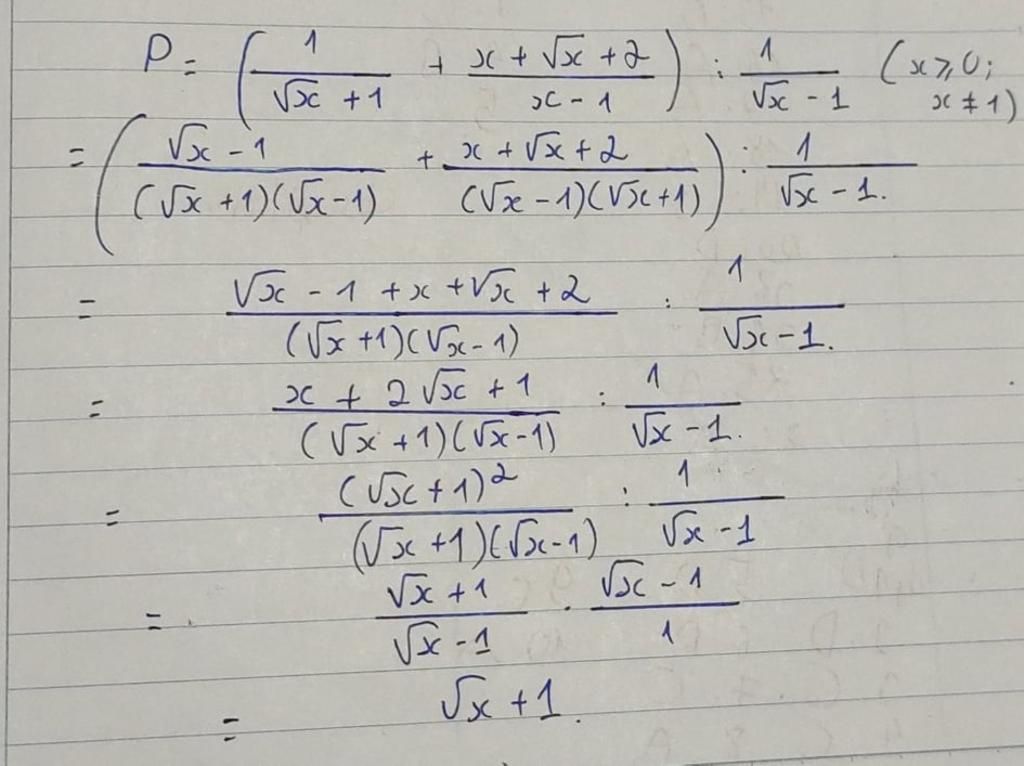 P = (1/(√x + 1) + (x + √x + 2)/(x - 1)) : 1/(√x - 1) (x ⩾ 0; x ≠ 1)
= ((√x - 1)/((√x + 1)(√x - 1)) + (x + √x + 2)/((√x - 1)(√x + 1))) : 1/(√x - 1).
= (√x - 1 + x + √x + 2)/((√x + 1)(√x - 1)) : 1/(√x - 1).
= (x + 2√x + 1)/((√x + 1)(√x - 1)) : 1/(√x - 1).
= (√x + 1)²/((√x + 1)(√x - 1)) : 1/(√x - 1)
= (√x + 1)/(√x - 1) . (√x - 1)/1
= √x + 1.